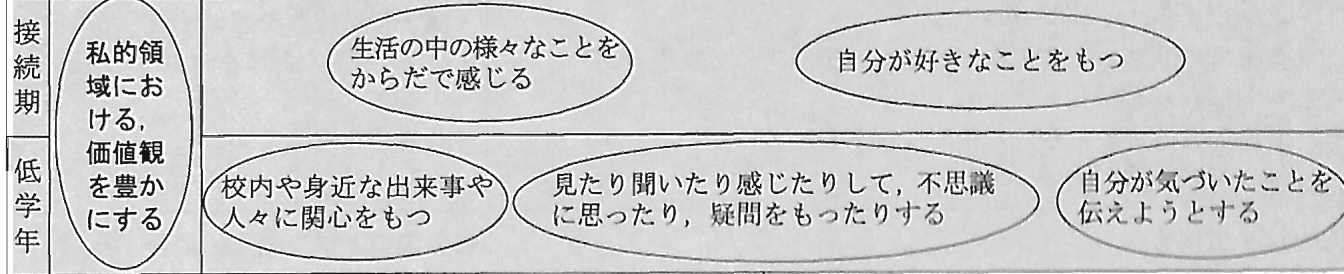 接続期
私的領
域にお
ける,
価値観
を豊か
にする
生活の中の様々なことを
からだで感じる
自分が好きなことをもつ
低学年
校内や身近な出来事や
人々に関心をもつ
見たり聞いたり感じたりして, 不思議
に思ったり, 疑問をもったりする
自分が気づいたことを
伝えようとする